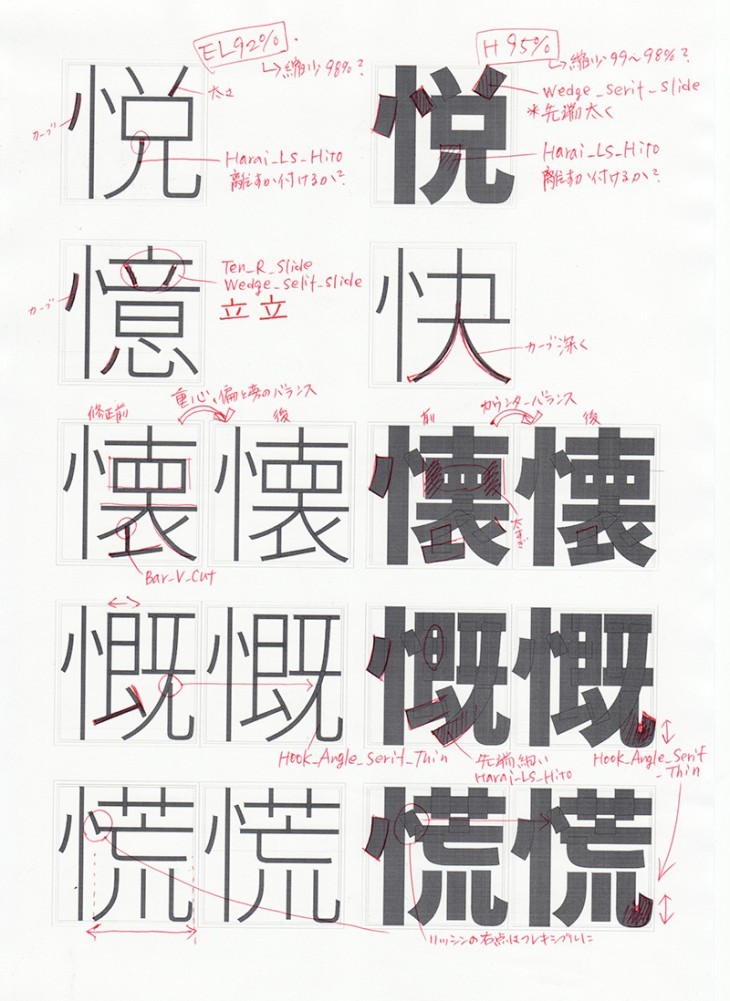 EL92%
↳縮少98%?
H 95%
↳縮少99〜98%?
悦
カーブ
太さ
Harai_Ls_Hito
離すか付けるか?
悦
Wedge_Serif_Slide
*先端太く
Harai_Ls_Hito
離すか付けるか?
憶
カーブ
Ten_R_Slide
Wedge_Selif_slide
立 立
快
カーブ深く
重心、偏と旁のバランス
修正前
後
懐 懐
Bar_V_Cut
カウンターバランス
前
後
懐 懐
太すぎ
慨 慨
Hook_Angle_Serif_Thin
慨 慨
先端細い
Harai_Ls_Hito
Hook_Angle_Serif
_Thin
慌 慌
慌 慌
リッシンの右点はフレキシブルに